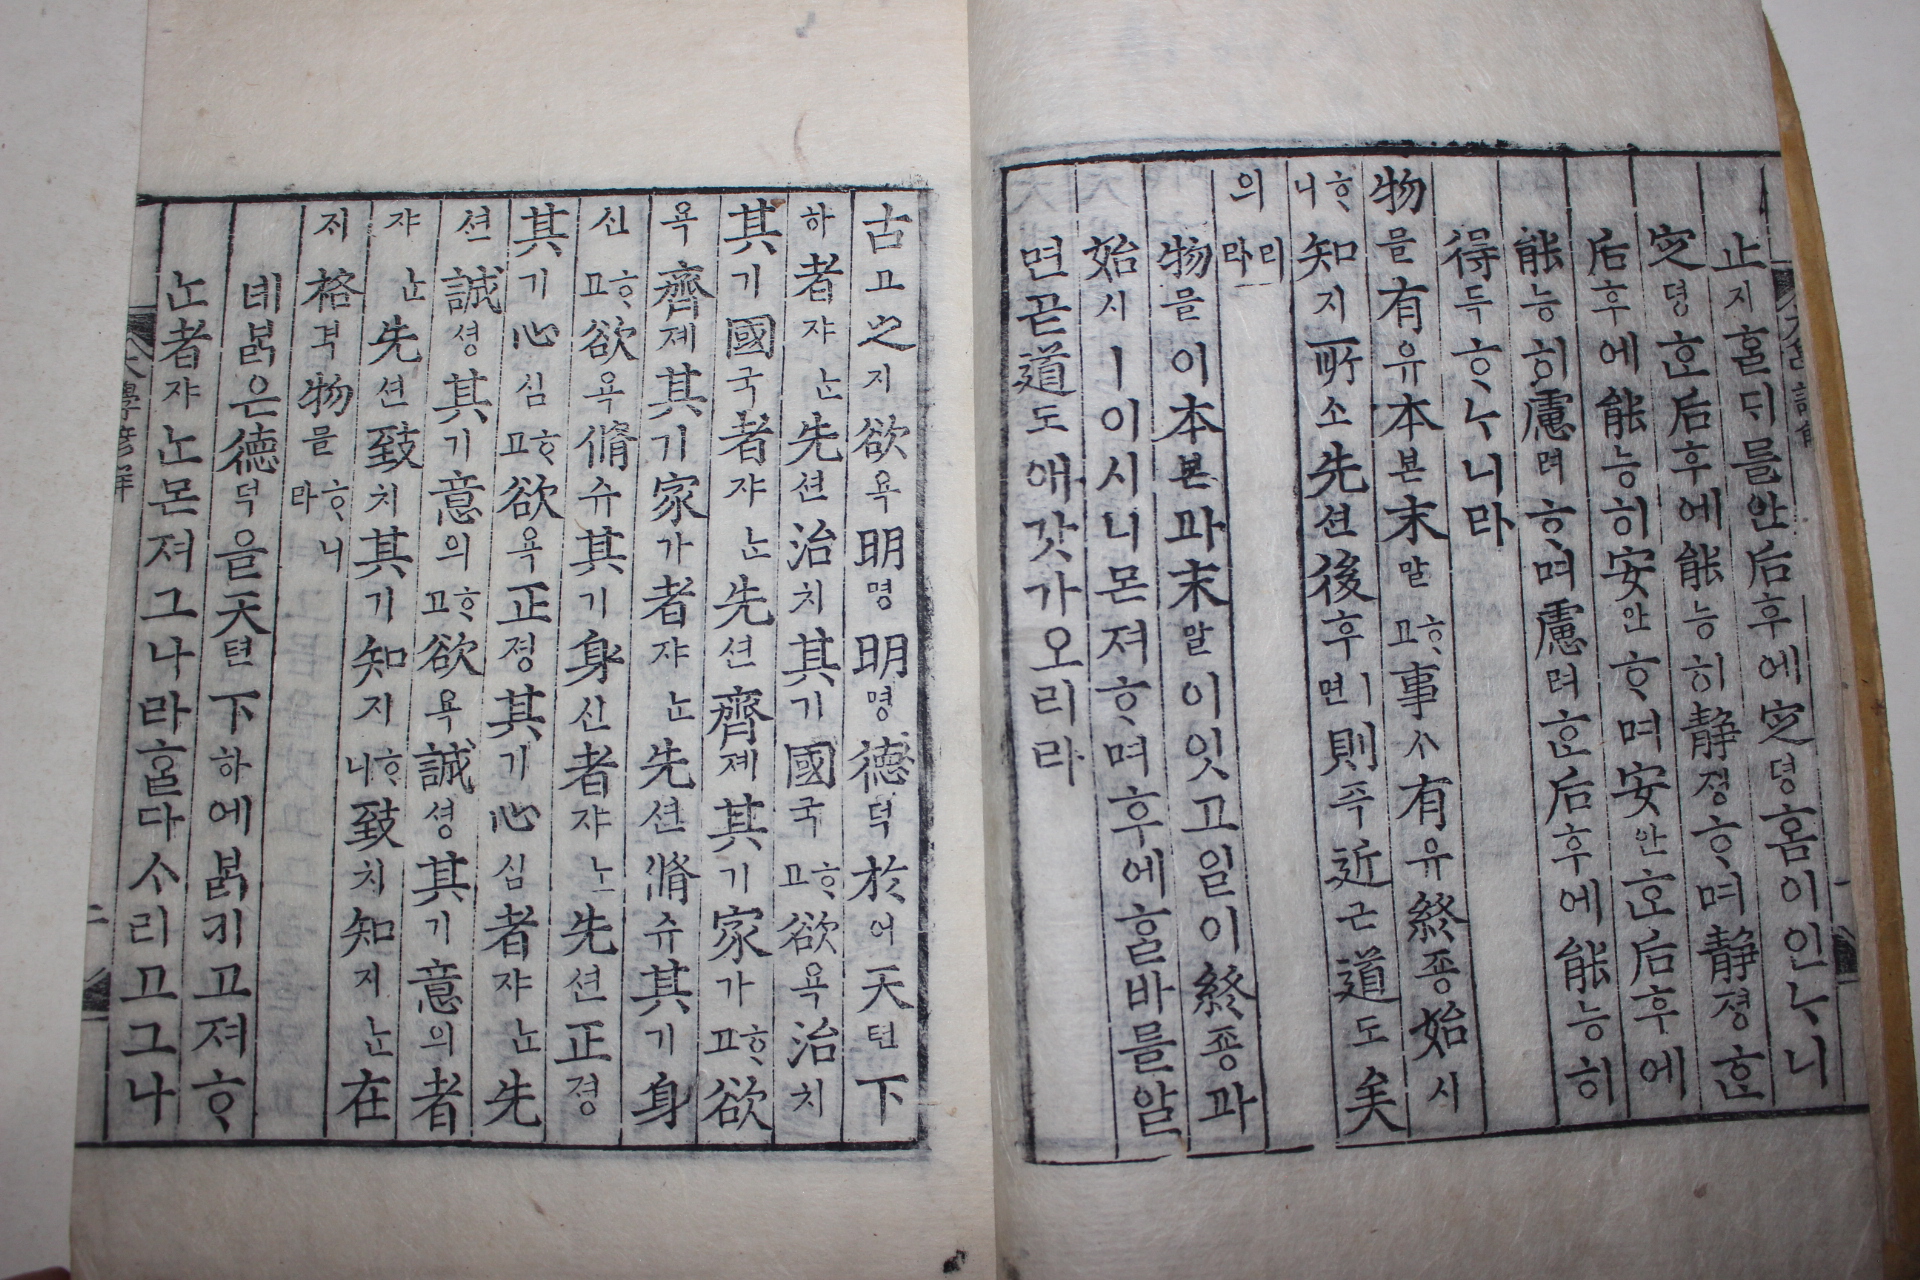 止지홀디를안后후에㝎뎡홈이인ᄂᆞ니
㝎뎡ᄒᆞᆫ后후에能능히静졍ᄒᆞ며静졍ᄒᆞᆫ
后후에能능히安안ᄒᆞ며安안ᄒᆞᆫ后후에
能능히慮려ᄒᆞ며慮려ᄒᆞᆫ后후에能능히
得득ᄒᆞᄂᆞ니라
物믈有유本본末말ᄒᆞ고事ᄉᆞ有유終죵始시
ᄒᆞ니知지所소先션後후ㅣ면則즉近근道도矣
의리라
物믈이本본과末말이잇고일이終죵과
始시ㅣ이시니몬져ᄒᆞ며후에ᄒᆞᆯ바를알
면곧道도애갓가오리라
古고之지欲욕明명明명德덕於어天텬下
하者쟈ᄂᆞᆫ先션治치其기國국ᄒᆞ고欲욕治치
其기國국者쟈ᄂᆞᆫ先션齊졔其기家가ᄒᆞ고欲
욕齊졔其기家가者쟈ᄂᆞᆫ先션脩슈其기身
신ᄒᆞ고欲욕脩슈其기身신者쟈ᄂᆞᆫ先션正졍
其기心심ᄒᆞ고欲욕正졍其기心심者쟈ᄂᆞᆫ先
션誠셩其기意의ᄒᆞ고欲욕誠셩其기意의者
쟈ᄂᆞᆫ先션致치其기知지ᄒᆞ니致치知지ᄂᆞᆫ在
ᄌᆡ格격物믈ᄒᆞ니라
녜ᄇᆞᆰ은德덕을天텬下하에ᄇᆞᆰ키고져ᄒᆞ
ᄂᆞᆫ者쟈ᄂᆞᆫ몬져그나라ᄒᆞᆯ다ᄉᆞ리고그나
大學諺解 二